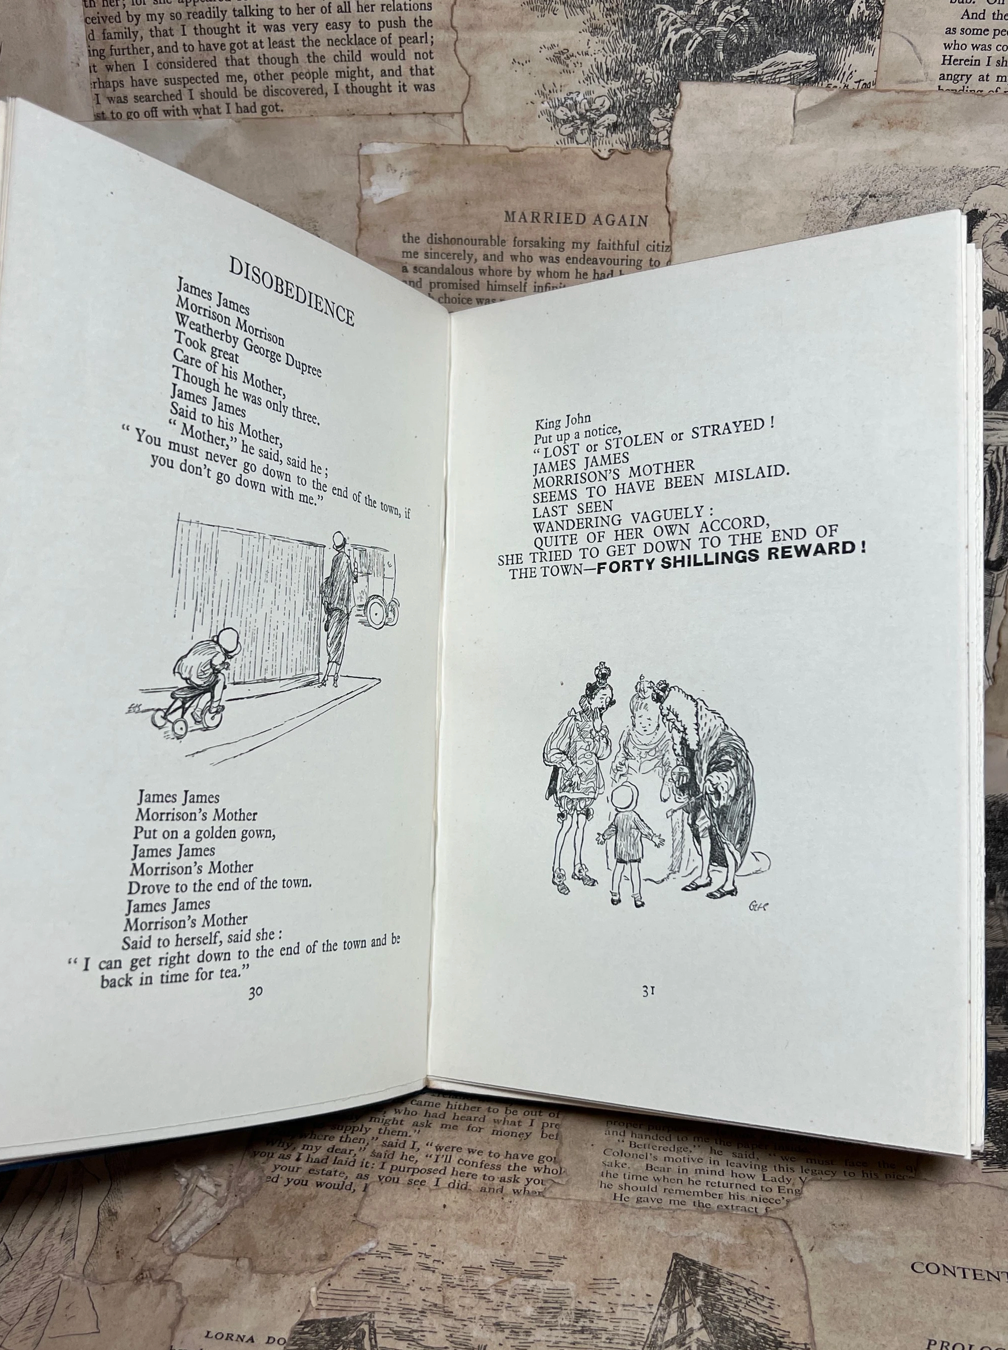 ceived by my so readily talking to her of all her relations
d family, that I thought it was very easy to push the
ing further, and to have got at least the necklace of pearl;
it when I considered that though the child would not
rhaps have suspected me, other people might, and that
I was searched I should be discovered, I thought it was
st to go off with what I had got.
And the
as some peo
who was co
Herein I sh
angry at m
MARRIED AGAIN
the dishonourable forsaking my faithful citiz
me sincerely, and who was endeavouring to
a scandalous whore by whom he had
and promised himself infinit
choice was
DISOBEDIENCE
James James
Morrison Morrison
Weatherby George Dupree
Took great
Care of his Mother,
Though he was only three.
James James
Said to his Mother,
“ Mother,” he said, said he ;
“ You must never go down to the end of the town, if
you don't go down with me.”
James James
Morrison's Mother
Put on a golden gown,
James James
Morrison's Mother
Drove to the end of the town.
James James
Morrison's Mother
Said to herself, said she :
“ I can get right down to the end of the town and be
back in time for tea.”
30
King John
Put up a notice,
“ LOST or STOLEN or STRAYED !
JAMES JAMES
MORRISON'S MOTHER
SEEMS TO HAVE BEEN MISLAID.
LAST SEEN
WANDERING VAGUELY :
QUITE OF HER OWN ACCORD,
SHE TRIED TO GET DOWN TO THE END OF
THE TOWN—FORTY SHILLINGS REWARD !
31
came hither to be out of
who had heard what I pre
might ask me for money bef
supply them.”
where then,” said I, “were we to have got
why, my dear,” said he, “I'll confess the whol
you as I had laid it: I purposed here to ask you
your estate, as you see I did, and when
ed you would, I
and handed to me the
“Betteredge,” he said, “we must face the
Colonel's motive in leaving this legacy to his
sake. Bear in mind how Lady V
the time when he returned to Eng
he should remember his niece's
He gave me the extract f
CONTENT
LORNA DO
PROLO